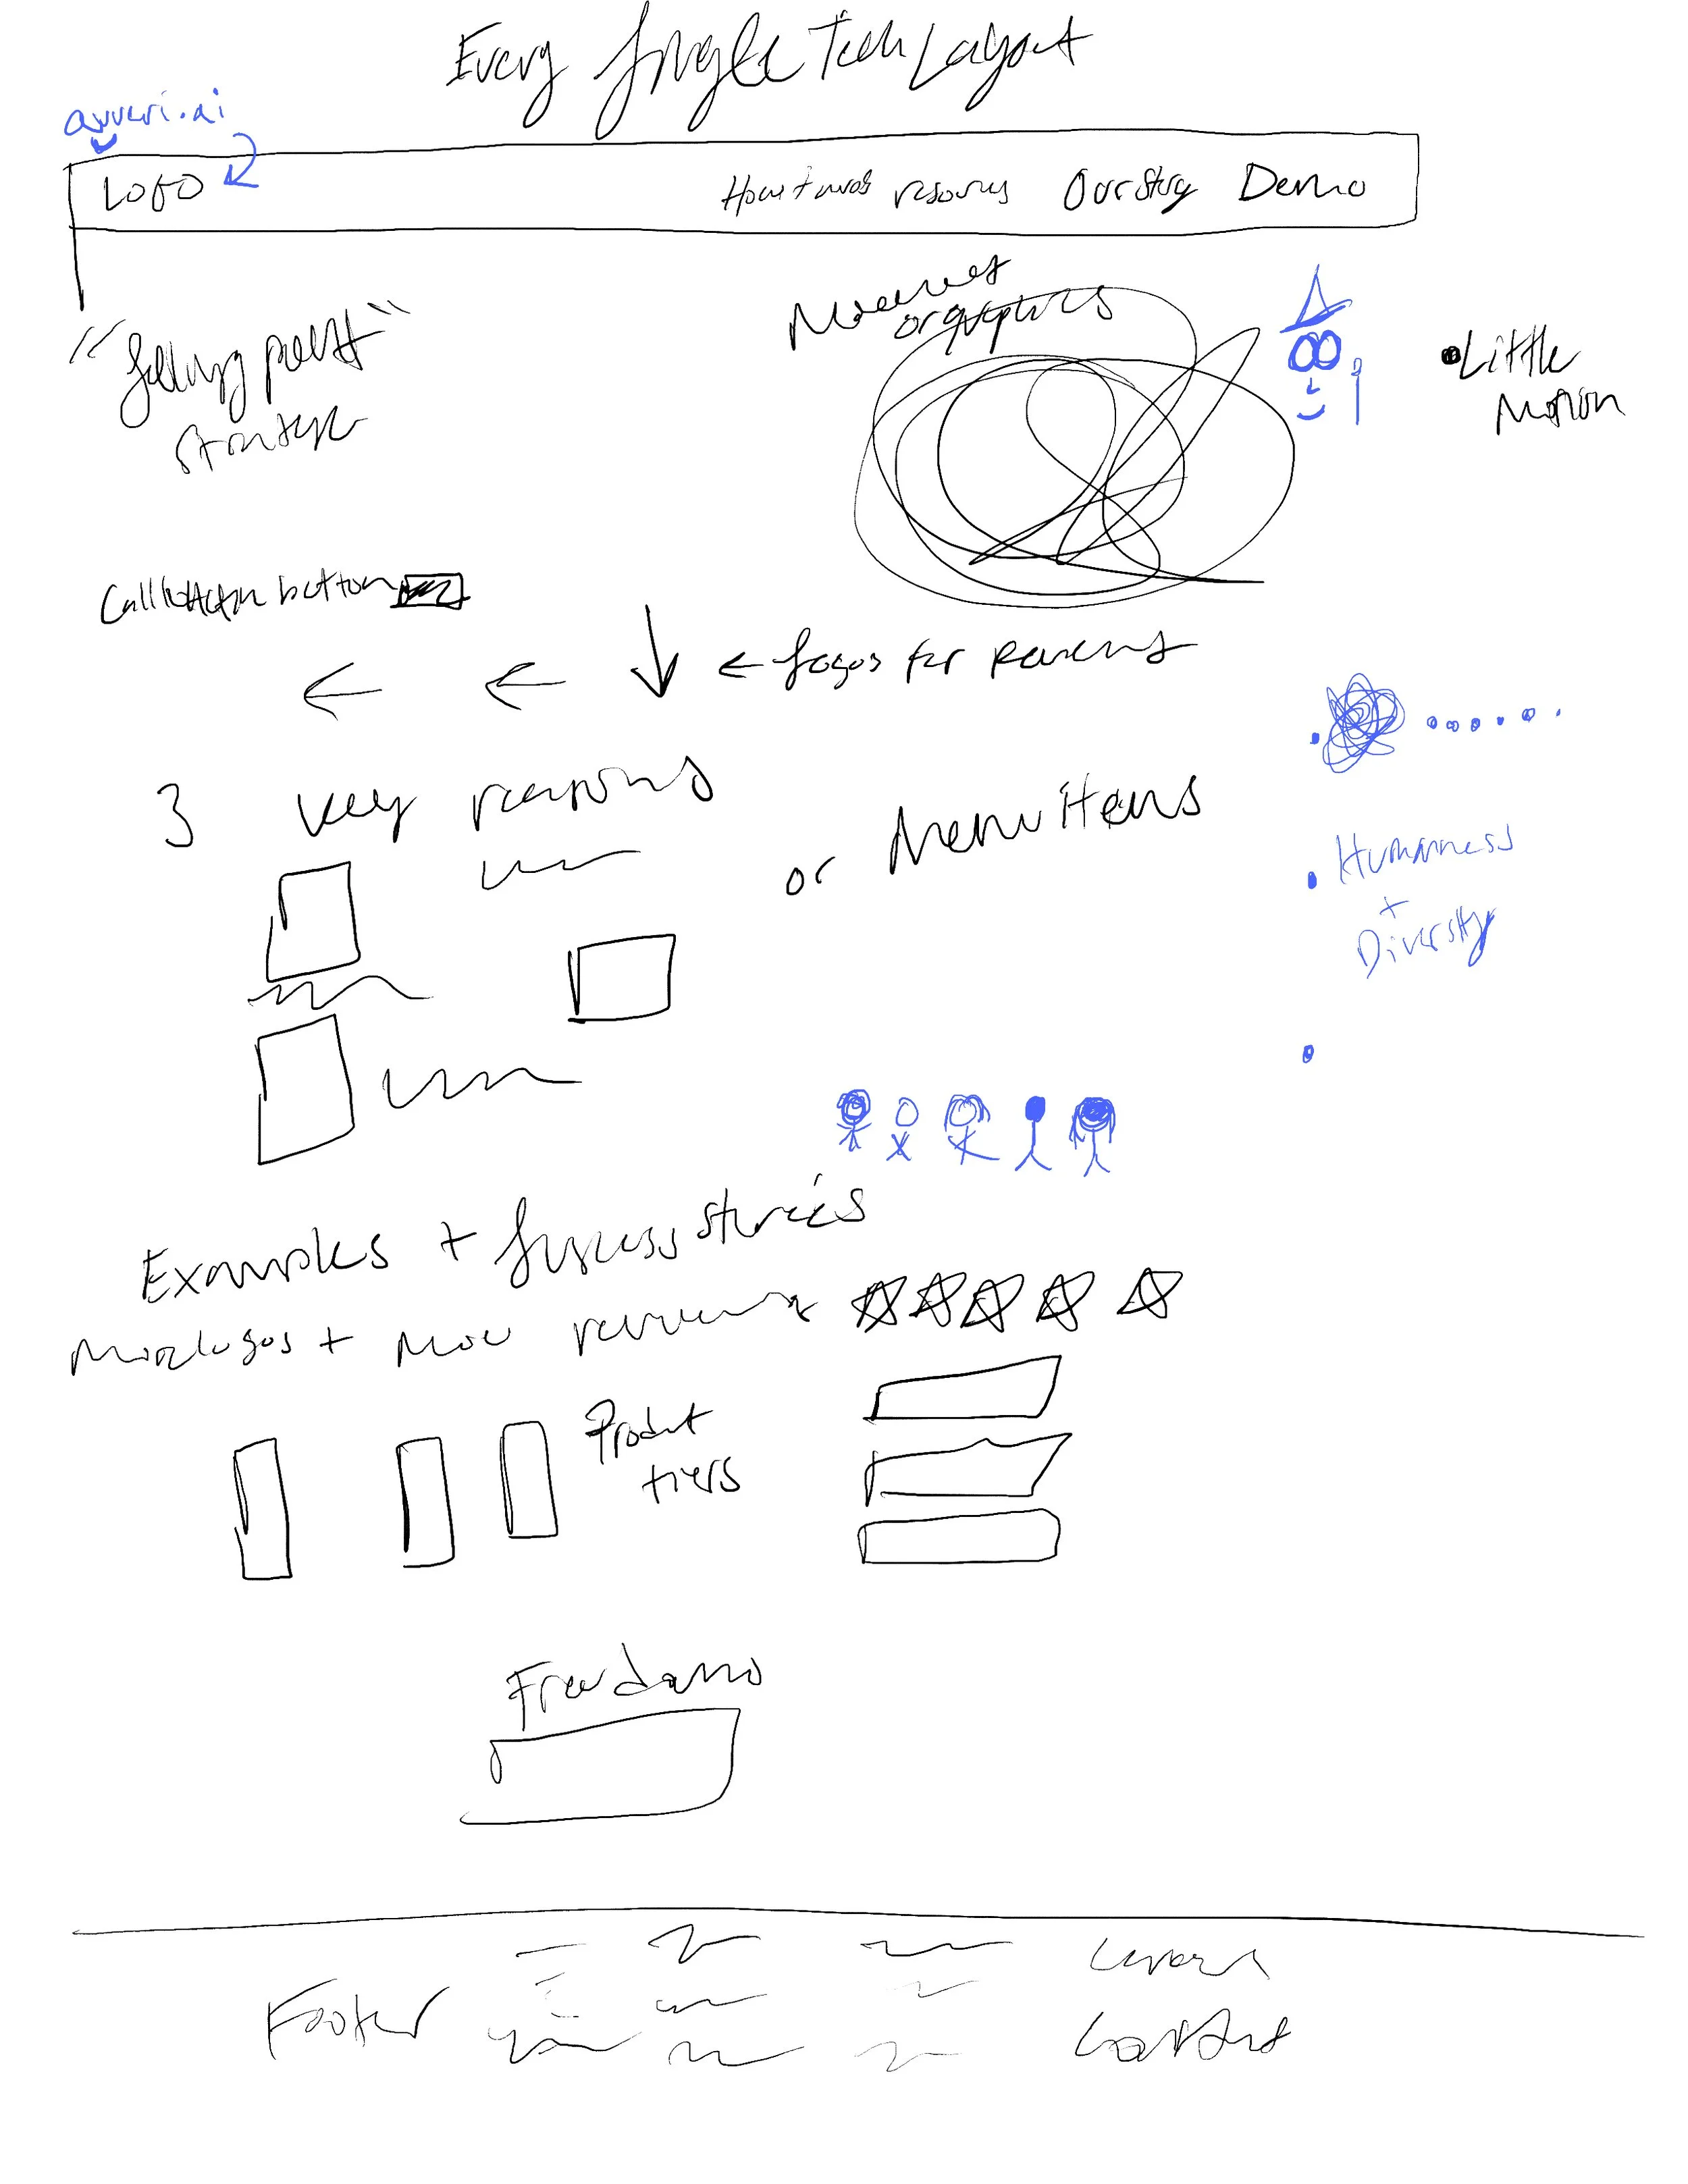 Every Single Tech Layout
LOGO How it works resources Our Story Demo
"Selling point"
or graphics
Little
Motion
Call to Action button
← Logos for
3 key reasons
or Menu items
Humanness
+
Diversity
Examples + Success stories
More logos + More
Product
tiers
Free demo
Footer